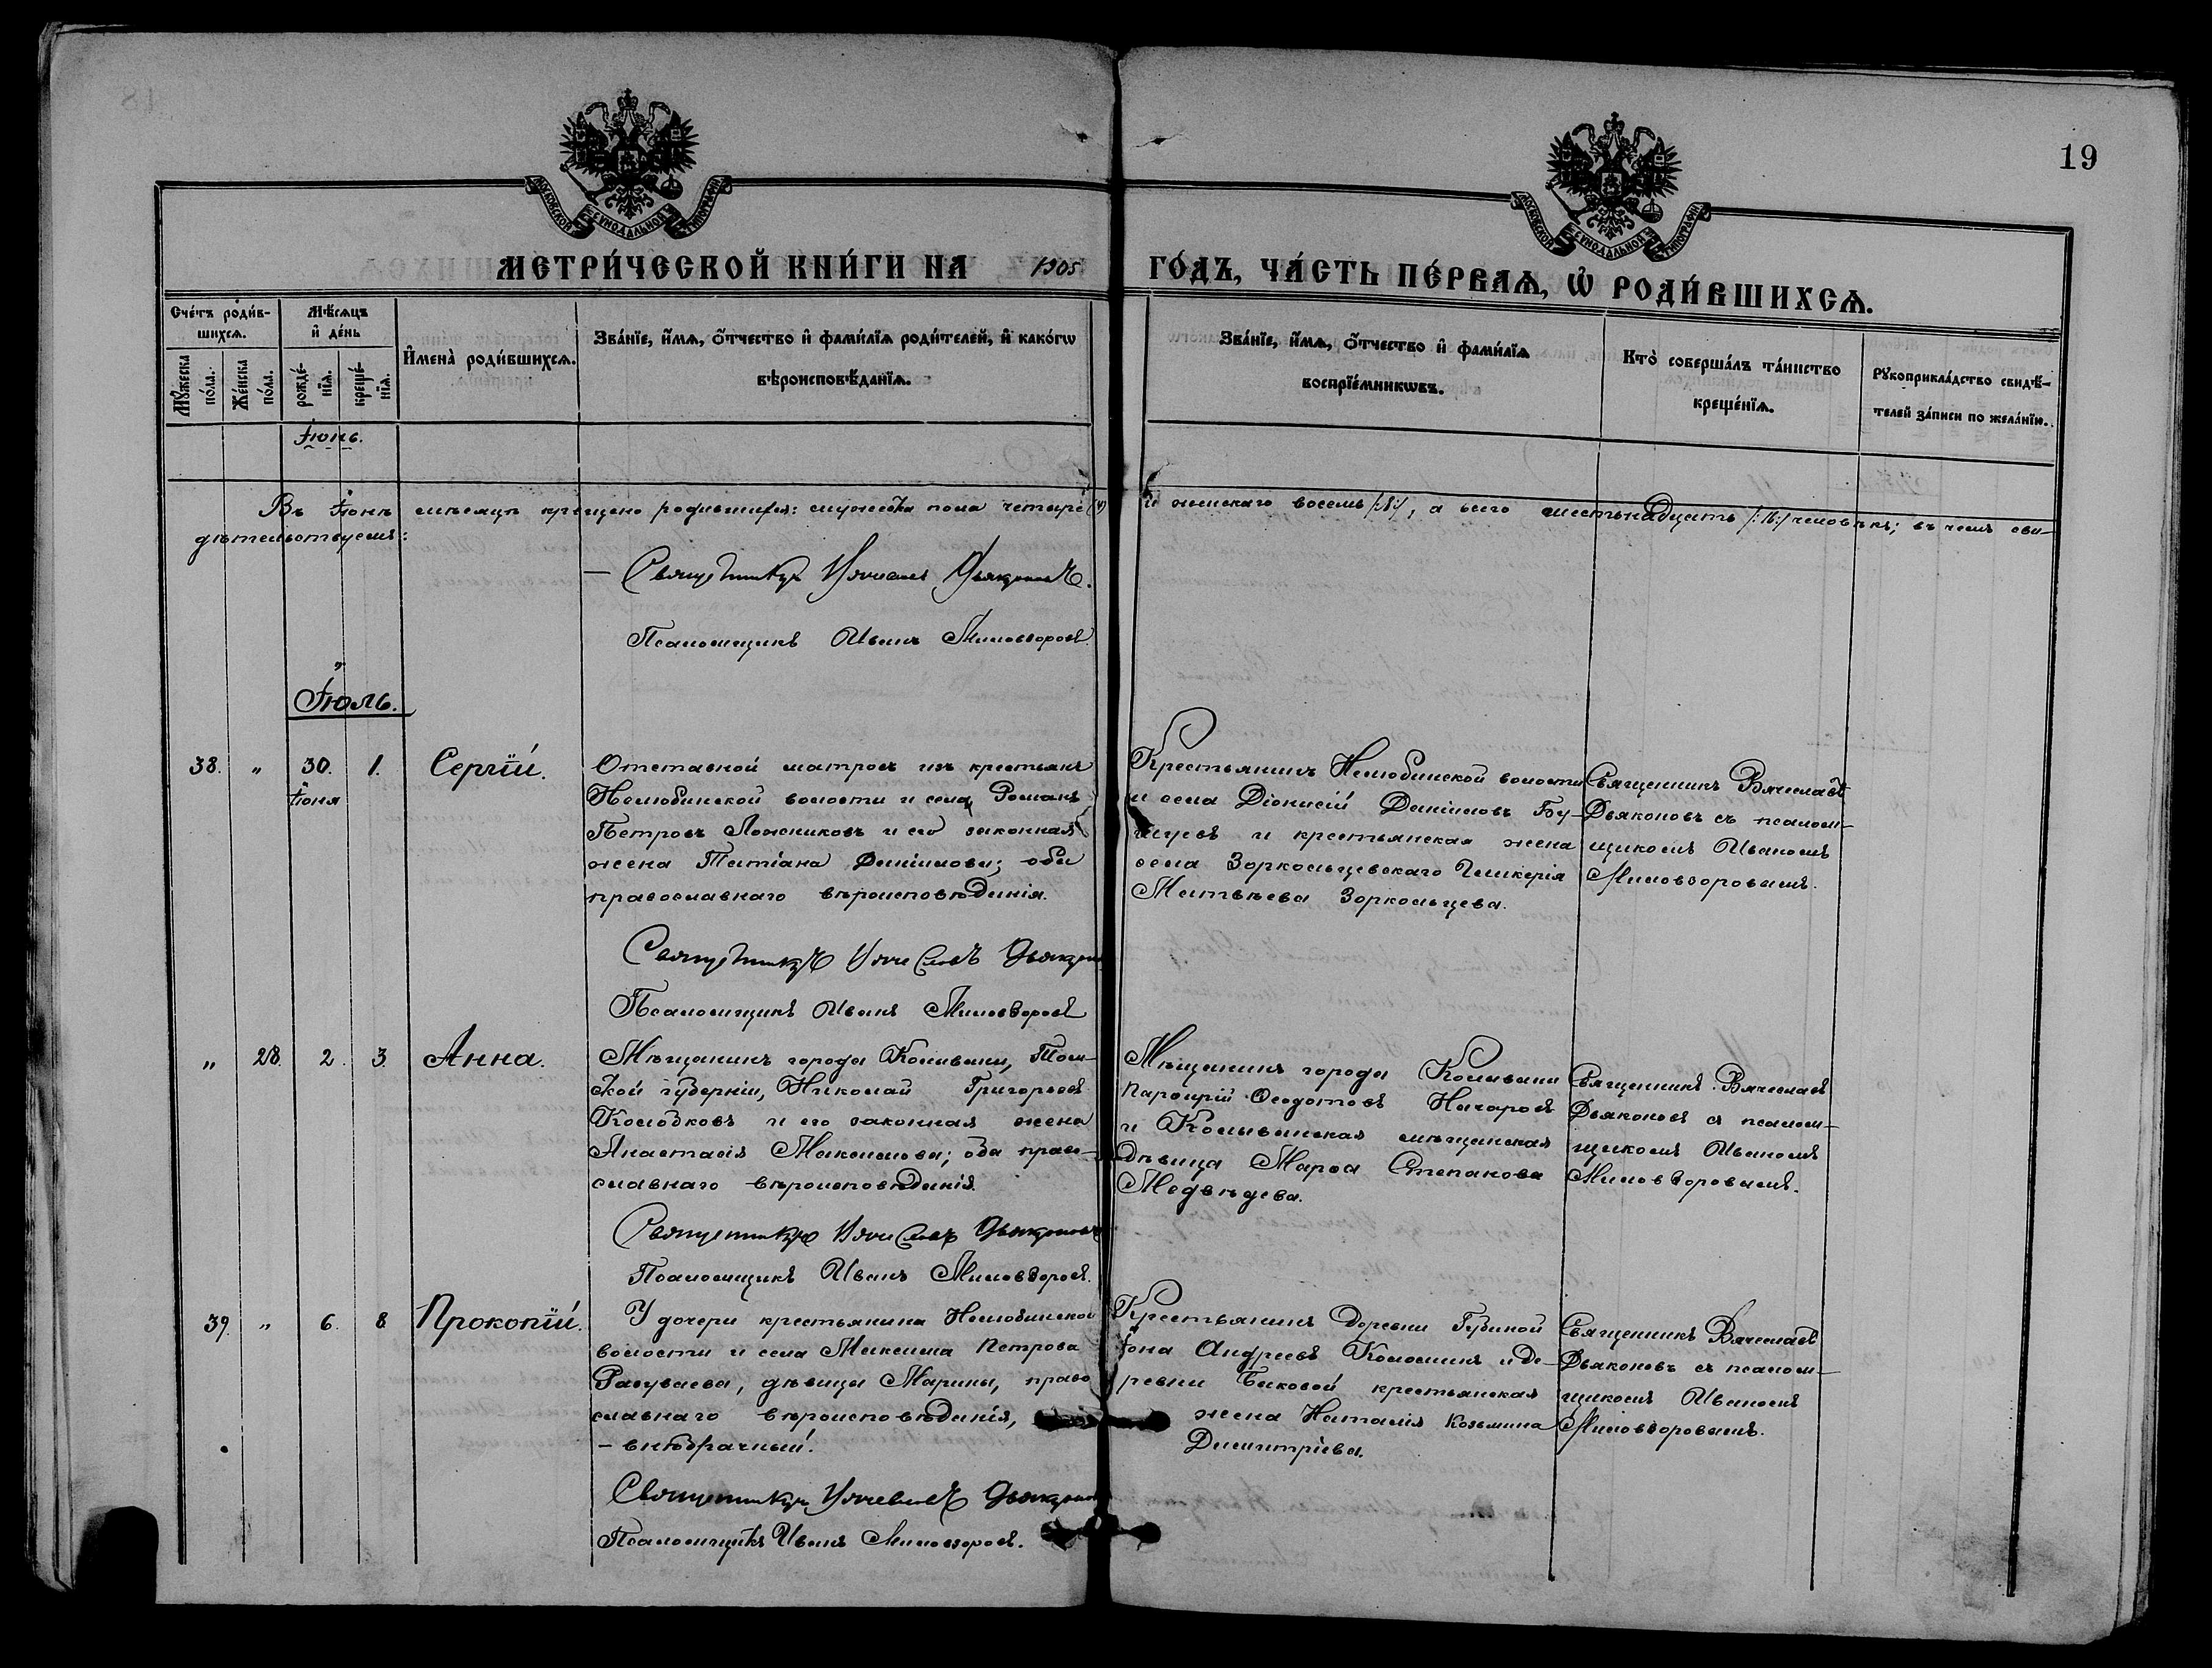 19
МОСКОВСКОЙ СУНОДАЛЬНОЙ ТИПОГРАФІИ
МОСКОВСКОЙ СУНОДАЛЬНОЙ ТИПОГРАФІИ
МЕТРИ́ЧЕСКОЙ КНИ́ГИ НА 1905 ГО́ДЪ, ЧА́СТЬ ПЕ́РВАѦ, Ѽ РОДИ́ВШИХСѦ.
Сче́тъ роди́в-
шихсѧ.
Мꙋ́жеска
по́ла.
Же́нска
по́ла.
Мѣ́сѧцъ
и҆ де́нь
рожде́-
нїѧ.
креще́-
нїѧ.
И҆мена̀ роди́вшихсѧ.
Зва́нїе, и҆́мѧ, ѻ҆́тчество и҆ фами́лїѧ роди́телей, и҆ како́гѡ
вѣроисповѣ́данїѧ.
Зва́нїе, и҆́мѧ, ѻ҆́тчество и҆ фами́лїѧ
воспрїе́мникѡвъ.
Кто̀ соверша́лъ та́инство
креще́нїѧ.
Рꙋкоприкла́дство свидѣ́-
телей за́писи по жела́нїю.
Іюнь.
Въ Іюнѣ мѣсяцѣ крещено родившихся: мужеска пола четыре и женскаго восемь /:8:/, а всего шестьнадцать /:16:/ человѣкъ; въ чемъ сви-
дѣтельствуемъ:
Священникъ Вячеславъ Дьяконовъ.
Псаломщикъ Иванъ Миловзоровъ
Іюль.
38. " 30. 1. Сергій.
Іюня
Отставной матросъ изъ крестьянъ
Нелюбинской волости и села Романъ
Петровъ Ложниковъ и его законная
жена Татіана Даніилова; оба
православнаго вѣроисповѣданія.
Крестьянинъ Нелюбинской волости
и села Діонисій Даніиловъ Бу-
и крестьянская жена
села Зоркольцевскаго Гликерія
Матвѣева Зоркольцева.
Священникъ Вячеславъ
Дьяконовъ съ псалом-
щикомъ Иваномъ
Миловзоровымъ.
Священникъ Вячеславъ Дьяконовъ
Псаломщикъ Иванъ Миловзоровъ
" 28. 2. 3. Анна.
Мѣщанинъ города Колывани, Том-
ской губерніи, Николай Григорьевъ
Колобковъ и его законная жена
Анастасія Максимова; оба право-
славнаго вѣроисповѣданія.
Мѣщанинъ города Колывани
Парфирій Ѳеодотовъ
и Колыванская мѣщанская
дѣвица Марѳа Степанова
Медвѣдева.
Священникъ Вячеславъ
Дьяконовъ съ псалом-
щикомъ Иваномъ
Миловзоровымъ.
Священникъ Вячеславъ Дьяконовъ
Псаломщикъ Иванъ Миловзоровъ.
39. " 6. 8. Прокопій.
У дочери крестьянина Нелюбинской
волости и села Максима Петрова
Разуваева, дѣвицы Марины, право
славнаго вѣроисповѣданія,
– внѣбрачный.
Крестьянинъ деревни Губиной
Іона Андреевъ Коломинъ и де-
ревни Быковой крестьянская
жена Наталія Козьмина
Димитріева.
Священникъ Вячеславъ
Дьяконовъ съ псалом-
щикомъ Иваномъ
Миловзоровымъ.
Священникъ Вячеславъ Дьяконовъ
Псаломщикъ Иванъ Миловзоровъ.